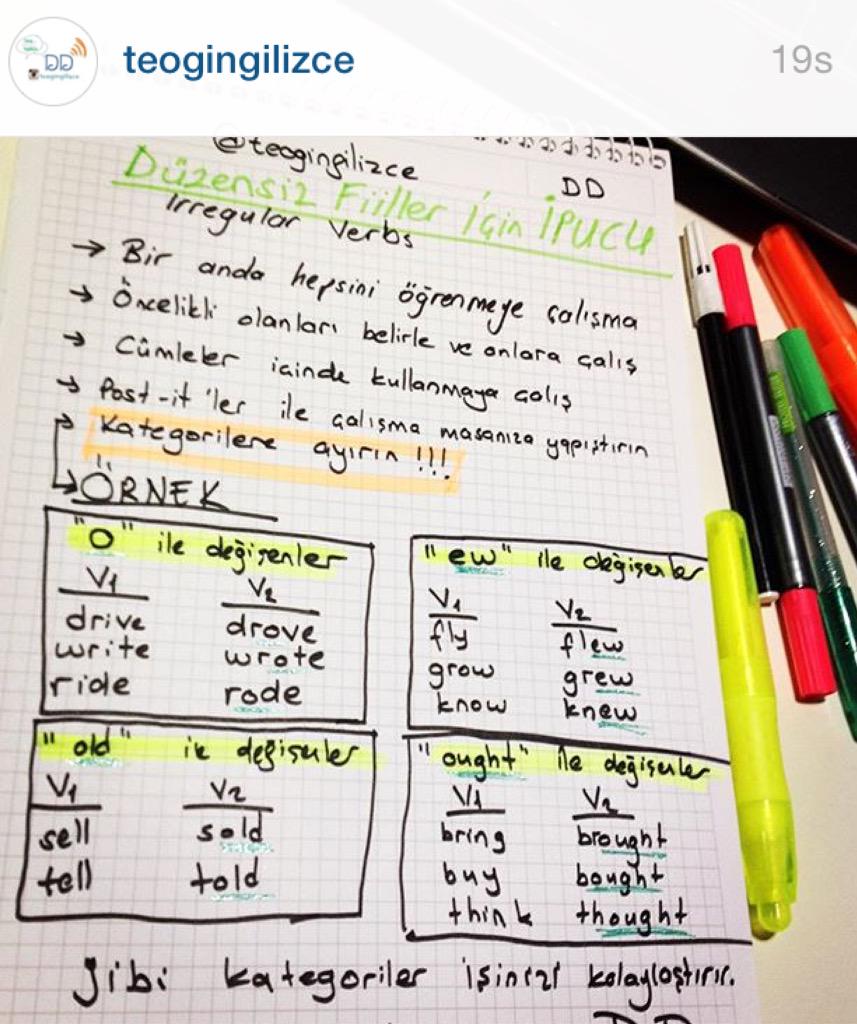 teogingilizce
19s
@teogingilizce
DD
Düzensiz Fiiller İçin İPUCU
Irregular Verbs
→ Bir anda hepsini öğrenmeye çalışma
→ Öncelikli olanları belirle ve onlara çalış
→ Cümleler içinde kullanmaya çalış
→ Post-it'ler ile çalışma masanıza yapıştırın
→ Kategorilere ayırın !!!
→ ÖRNEK
"O" ile değişenler
V1 V2
drive drove
write wrote
ride rode
"ew" ile değişenler
V1 V2
fly flew
grow grew
know knew
"old" ile değişenler
V1 V2
sell sold
tell told
"ought" ile değişenler
V1 V2
bring brought
buy bought
think thought
gibi kategoriler işinizi kolaylaştırır.
DD